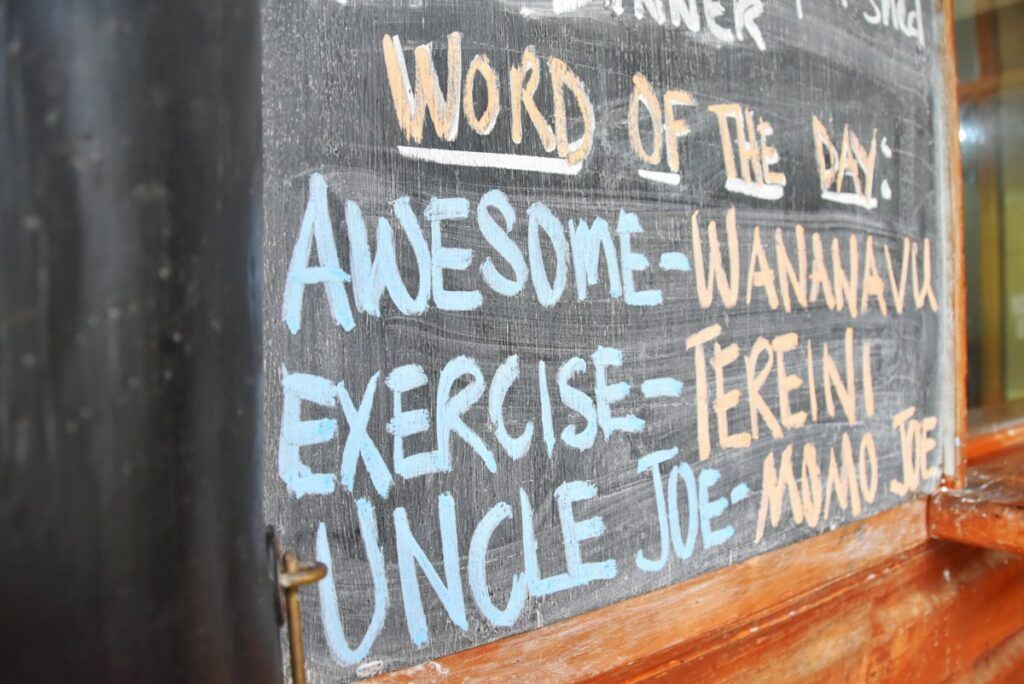 DINNER
WORD OF THE DAY:
AWESOME-WANANAVU
EXERCISE-TEREINI
UNCLE JOE-MOMO JOE